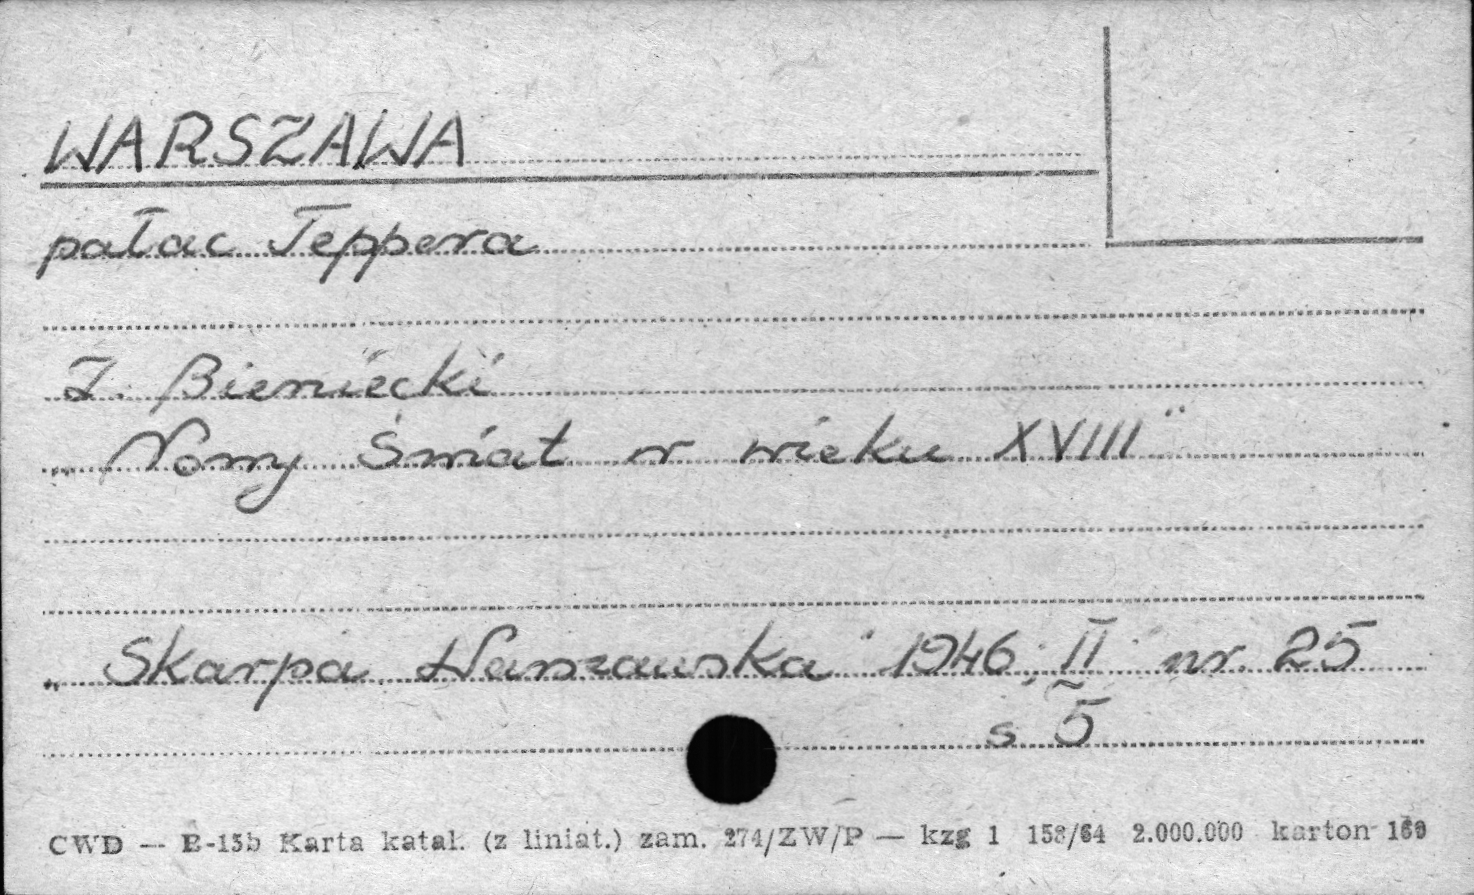 WARSZAWA
pałac Teppera
Z. Bieniecki
„Nowy Świat w wieku XVIII"
„Skarpa Warszawska" 1946, II nr. 25
s 5
CWD — E-15b Karta katal. (z liniat.) zam. 274/ZW/P — kzg 1 158/64 2.000.000 karton 160